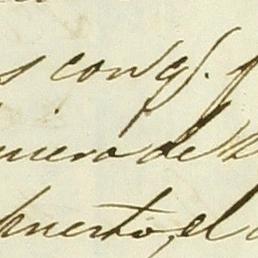 s con qe. f
niero de
puerto, el